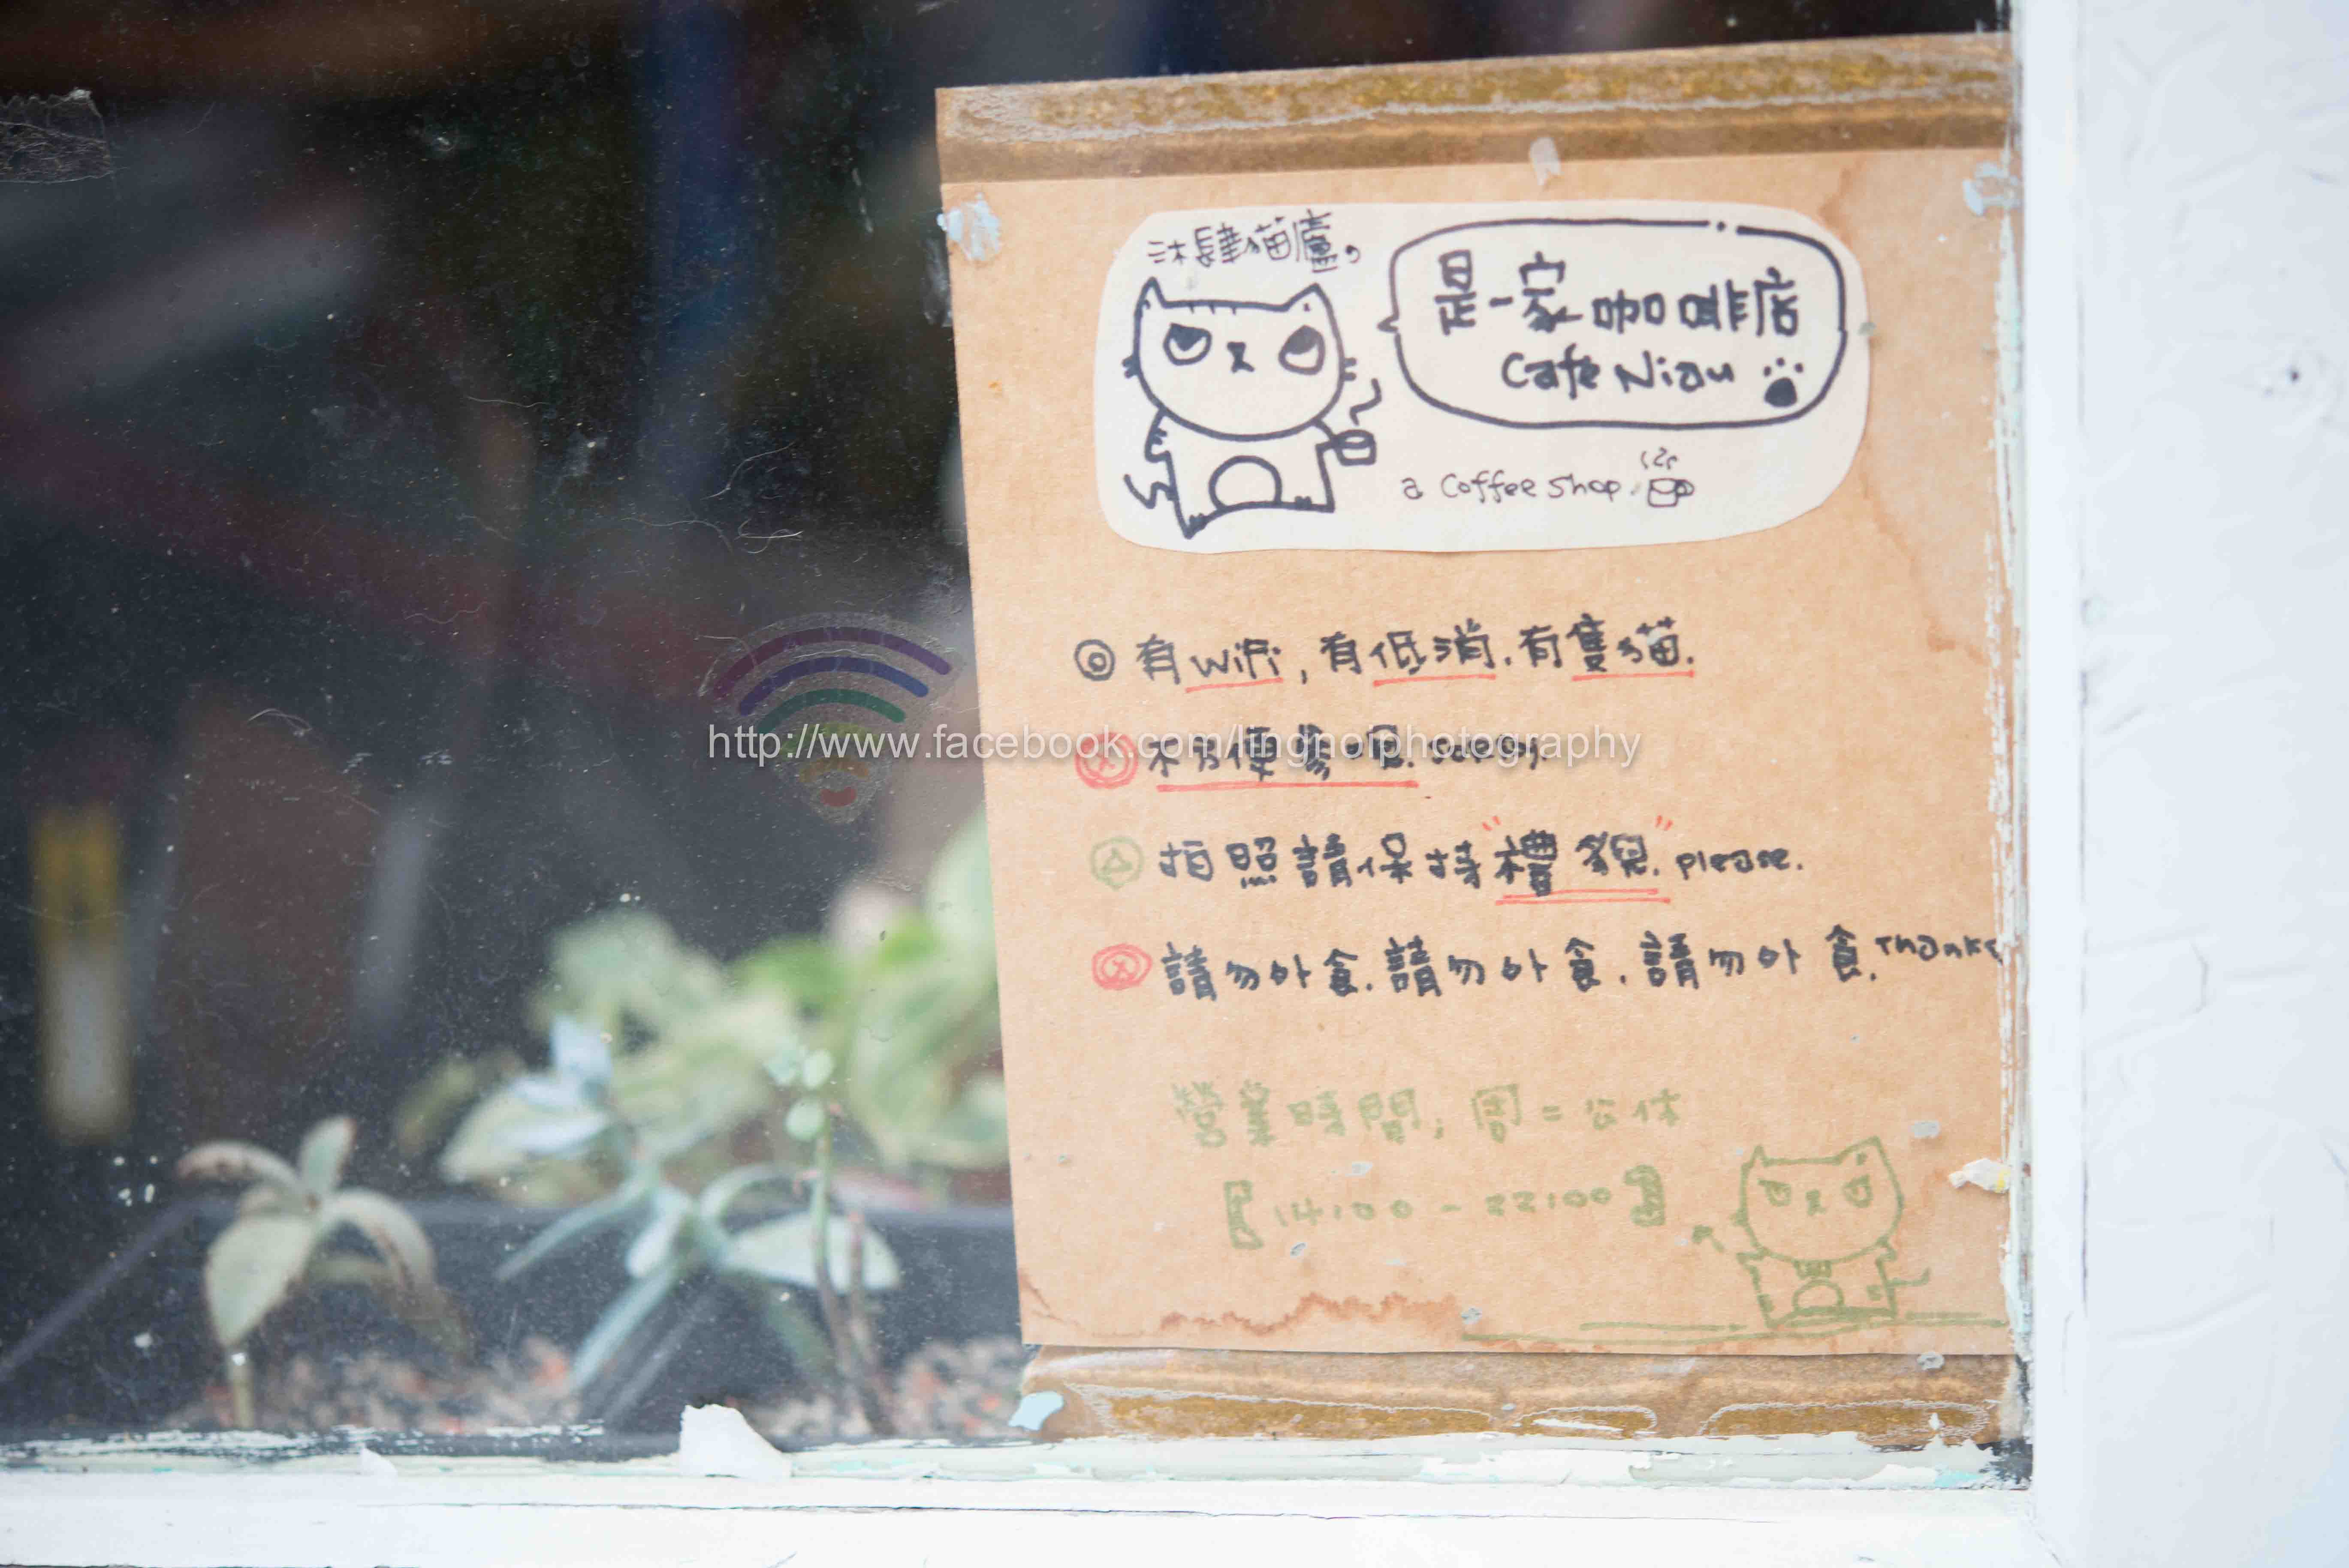 沐肆貓廬,
是一家咖啡店
Cafe Niau
a Coffee Shop
有 wifi, 有低消. 有隻貓.
http://www.facebook.com/lingnoiphotography
不方便參觀. sorry.
拍照請保持"禮貌". please.
請勿外食. 請勿外食. 請勿外食. Thanks
營業時間: 周二公休
『14:00 - 22:00』